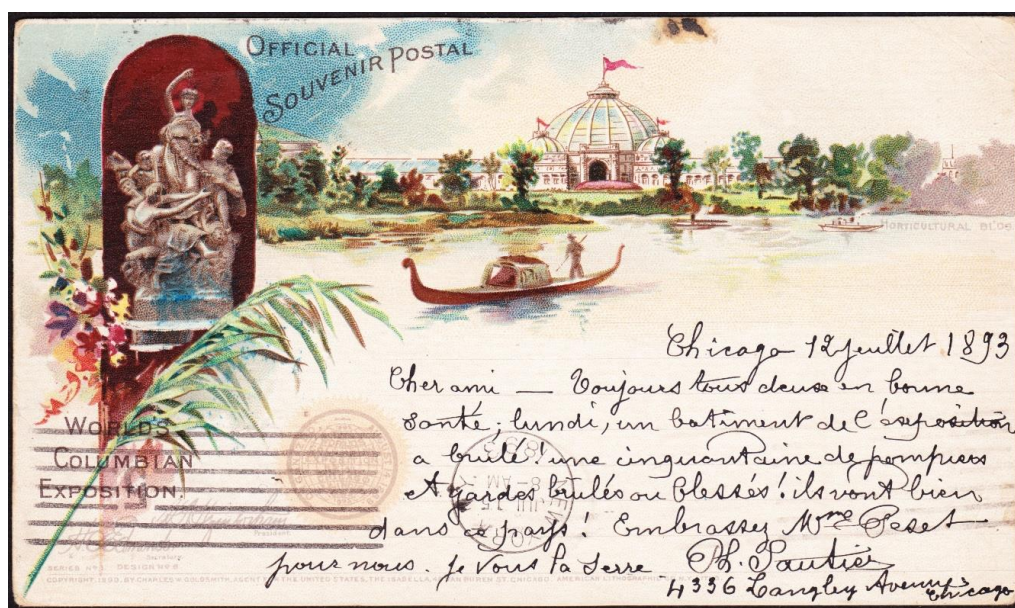 OFFICIAL
SOUVENIR POSTAL
HORTICULTURAL BLDG.
Chicago 12 juillet 1893
Cher ami — Toujours tous deux en bonne
santé; lundi, un batiment de l'exposition
a brulé! une cinquantaine de pompiers
et gardes brulés ou blessés! ils vont bien
dans ce pays! Embrassez Mme Peset
pour nous. je vous la serre Ph. Pautier
4336 Langley Avenue
Chicago
WORLD'S
COLUMBIAN
EXPOSITION.
President
Secretary
SERIES Nº1 DESIGN Nº
COPYRIGHT 1893, BY CHARLES W. GOLDSMITH, AGENT FOR THE UNITED STATES, THE ISABELLA, VAN BUREN ST. CHICAGO. AMERICAN LITHOGRAPHIC
NEW
JUL 15
8-AM
93